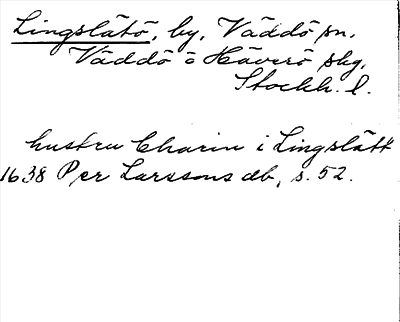 Lingslätö, by, Väddö sn,
Väddö o Häverö skg,
Stockh. l.
hustru Charin i Lingslätt
1638 Per Larssons db, s. 52.